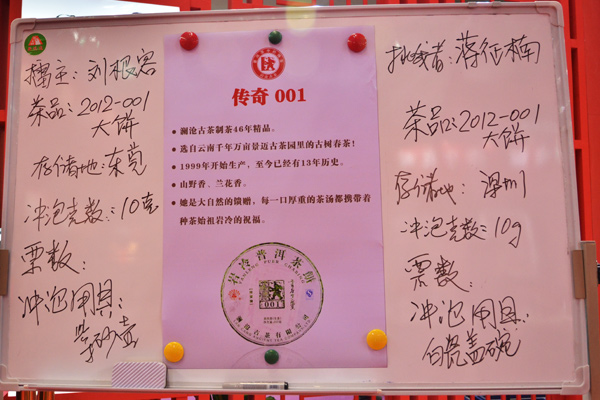 擂主：刘
茶品：2012-001
大饼
存储地：东莞
冲泡克数：10克
票数：
冲泡用具：
紫砂壶
传奇 001
● 澜沧古茶制茶46年精品。
● 选自云南千年万亩景迈古茶园里的古树春茶！
● 1999年开始生产，至今已经有13年历史。
● 山野香、兰花香。
● 她是大自然的馈赠，每一口厚重的茶汤都携带着
种茶始祖岩冷的祝福。
岩冷普洱茶饼
001
澜沧古茶有限公司
挑战者：蒋征楠
茶品：2012-001
大饼
存储地：深圳
冲泡克数：10g
票数：
冲泡用具：
白瓷盖碗